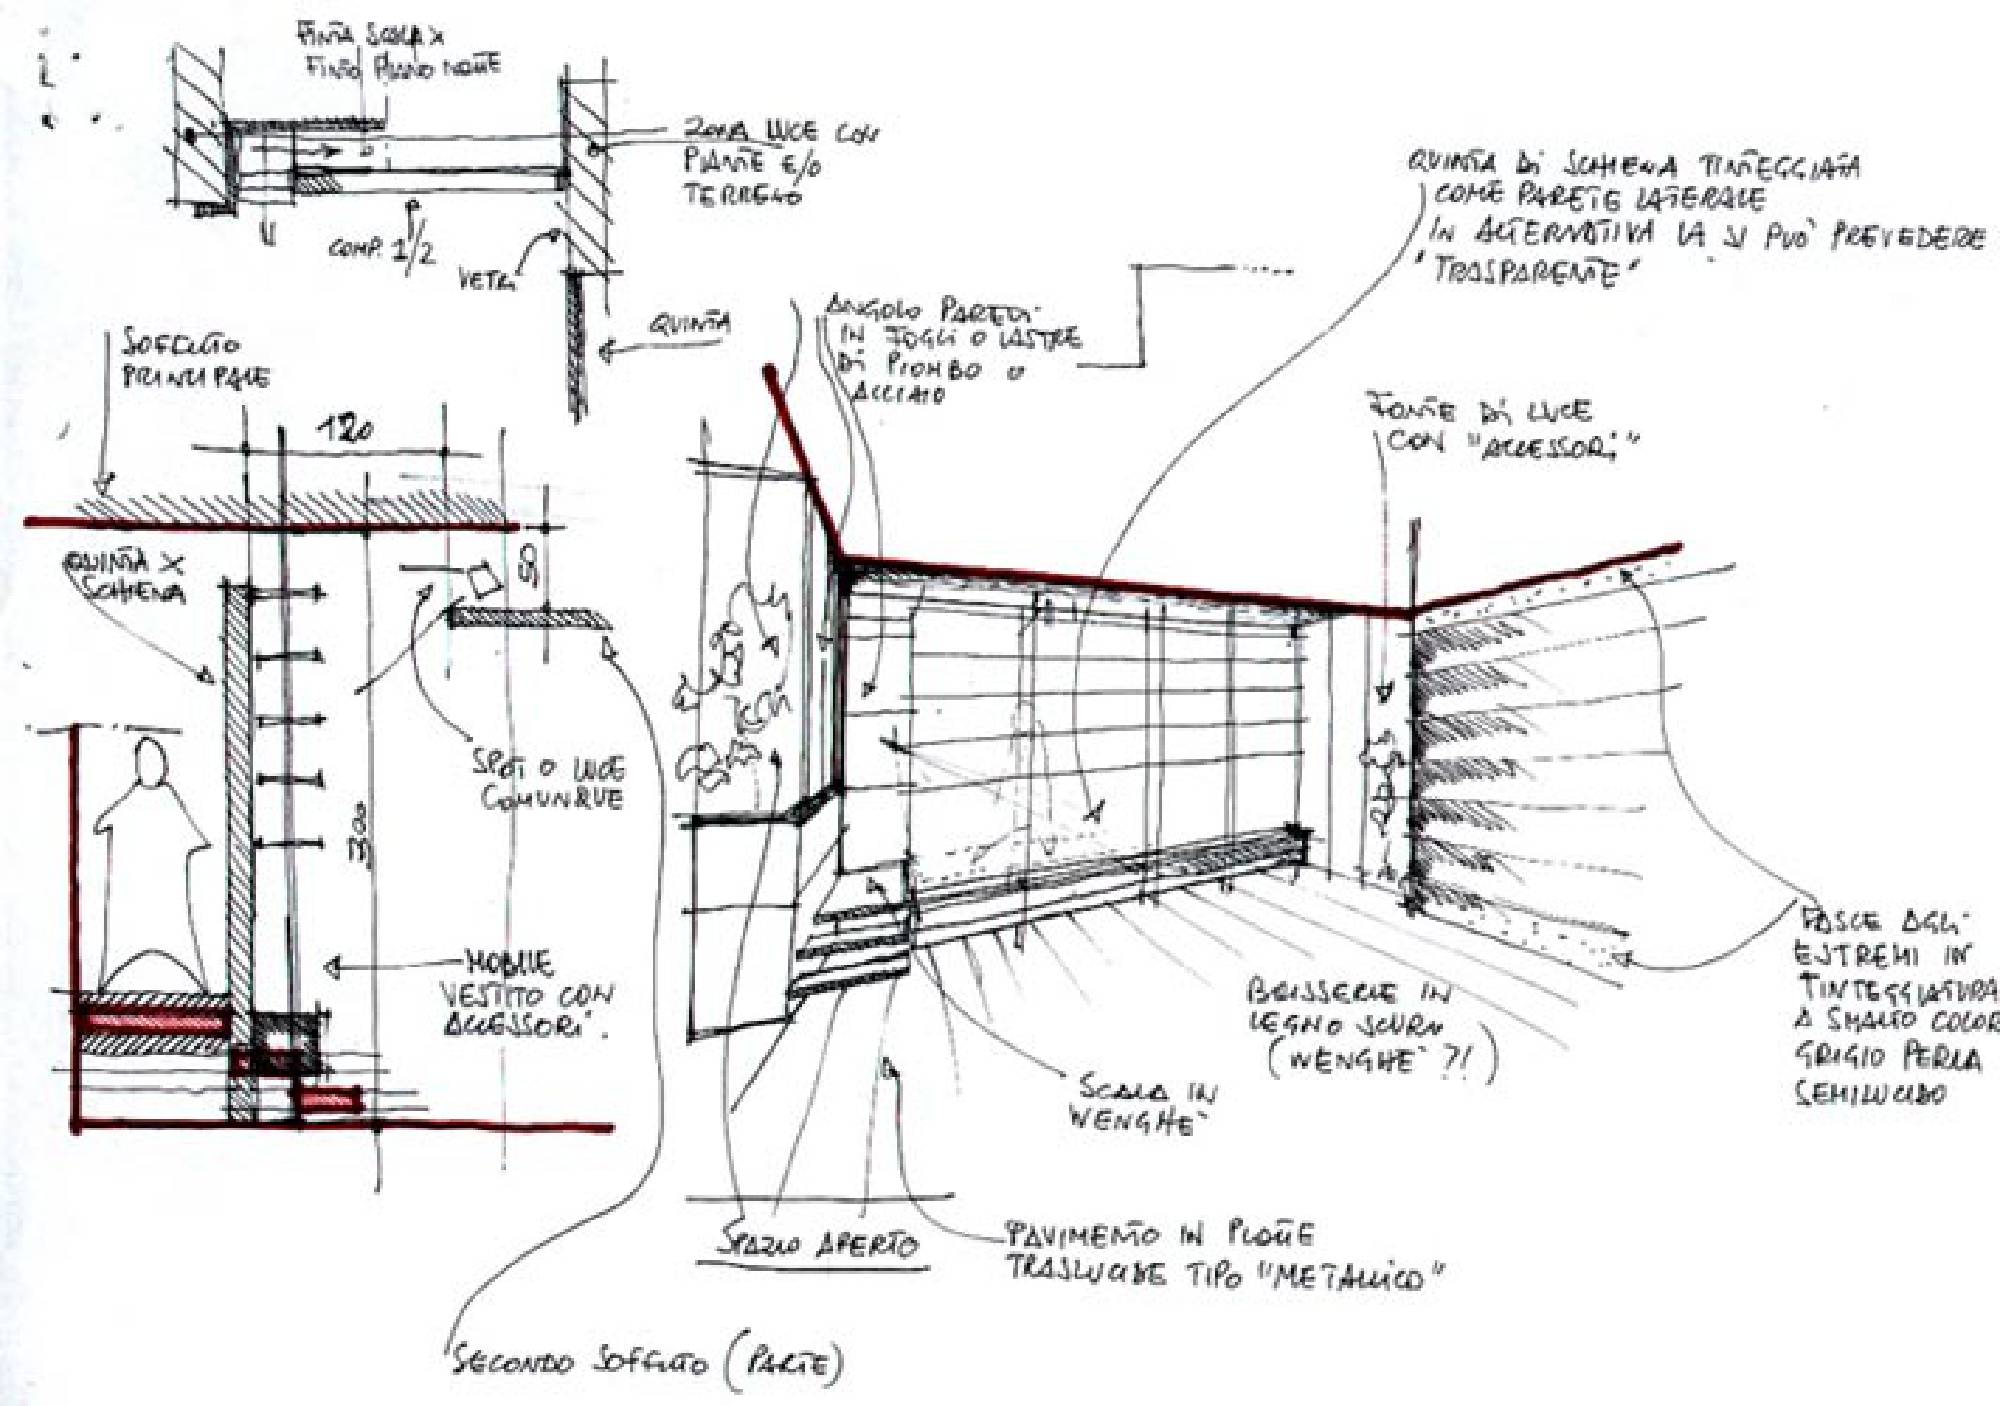 FINTA SCALA X
FINTO PIANO NOTTE
ZONA LUCE CON
PIANTE E/O
TERRENO
COMP. 1/2
VETRI
QUINTA
SOFFITTO
PRINCIPALE
120
QUINTA X
SCHIENA
50
SPOT O LUCE
COMUNQUE
300
MOBILE
VESTITO CON
ACCESSORI.
SECONDO SOFFITTO (PARTE)
ANGOLO PARETI
IN FOGLI O LASTRE
DI PIOMBO O
ACCIAIO
QUINTA DI SCHIENA TINTEGGIATA
COME PARETE LATERALE
IN ALTERNATIVA LA SI PUO' PREVEDERE
"TRASPARENTE"
FONTE DI LUCE
CON "ACCESSORI"
FASCE AGLI
ESTREMI IN
TINTEGGIATURA
A SMALTO COLOR
GRIGIO PERLA
SEMILUCIDO
BOISSERIE IN
LEGNO SCURO
(WENGHE' ?!)
SCALA IN
WENGHE'
SPAZIO APERTO
PAVIMENTO IN
TRASLUCIDE TIPO "METALLICO"